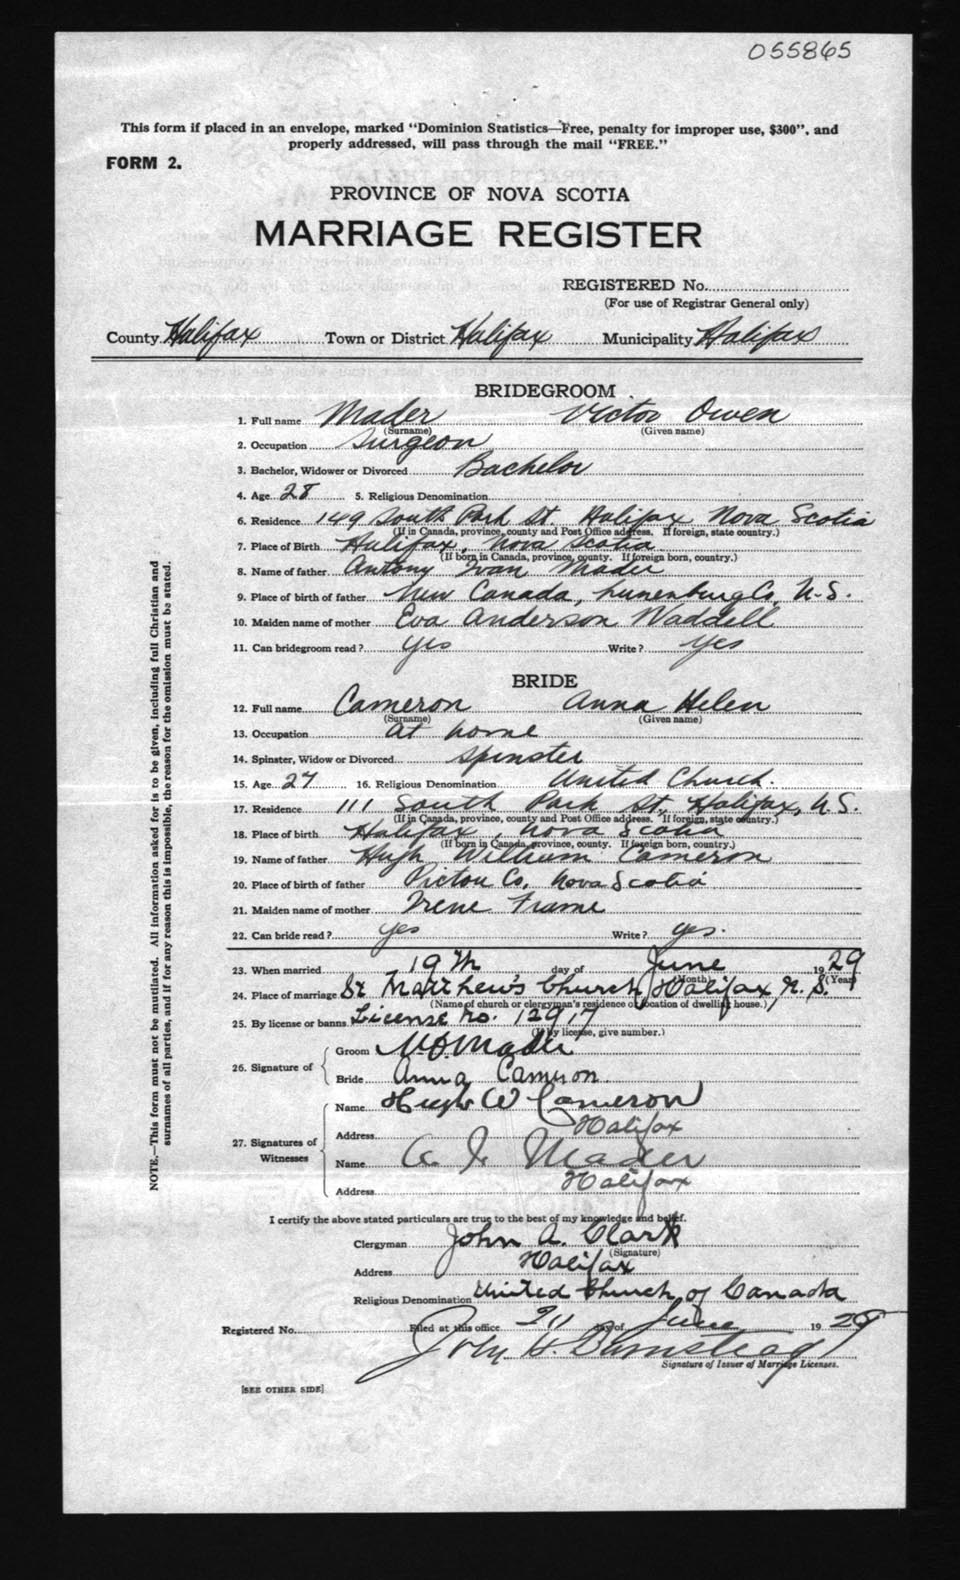 055865
This form if placed in an envelope, marked "Dominion Statistics—Free, penalty for improper use, $300", and
properly addressed, will pass through the mail "FREE."
FORM 2.
PROVINCE OF NOVA SCOTIA
MARRIAGE REGISTER
REGISTERED No.
(For use of Registrar General only)
County Halifax Town or District Halifax Municipality Halifax
BRIDEGROOM
1. Full name Mader Victor Owen
(Surname) (Given name)
2. Occupation Surgeon
3. Bachelor, Widower or Divorced Bachelor
4. Age 28 5. Religious Denomination
6. Residence 149 South Park St. Halifax Nova Scotia
(If in Canada, province, county and Post Office address. If foreign, state country.)
7. Place of Birth Halifax, Nova Scotia
(If born in Canada, province, county. If foreign born, country.)
8. Name of father Antony Ivan Mader
9. Place of birth of father New Canada, Lunenburg Co, N.S.
10. Maiden name of mother Eva Anderson Waddell
11. Can bridegroom read? yes Write? yes
BRIDE
12. Full name Cameron Anna Helen
(Surname) (Given name)
13. Occupation at home
14. Spinster, Widow or Divorced Spinster
15. Age 27 16. Religious Denomination United Church.
17. Residence 111 South Park St. Halifax, N.S.
(If in Canada, province, county and Post Office address. If foreign, state country.)
18. Place of birth Halifax, Nova Scotia
(If born in Canada, province, county. If foreign born, country.)
19. Name of father Hugh William Cameron
20. Place of birth of father Pictou Co, Nova Scotia
21. Maiden name of mother Irene Frame
22. Can bride read? yes Write? yes.
23. When married 19th day of June 1929
(Month) (Year)
24. Place of marriage St Matthew's Church, Halifax, N.S.
(Name of church or clergyman's residence or location of dwelling house.)
25. By license or banns License No. 12917
(If by license, give number.)
26. Signature of
Groom V. O. Mader
Bride Anna Cameron.
27. Signatures of Witnesses
Name Hugh W Cameron
Address Halifax
Name A I Mader
Address Halifax
I certify the above stated particulars are true to the best of my knowledge and belief.
Clergyman John A. Clark
(Signature)
Address Halifax
Religious Denomination United Church of Canada
Registered No. Filed at this office day of June 1929
John
Signature of Issuer of Marriage Licenses.
[SEE OTHER SIDE]
NOTE.—This form must not be mutilated. All information asked for is to be given, including full Christian and
surnames of all parties, and if for any reason this is impossible, the reason for the omission must be stated.